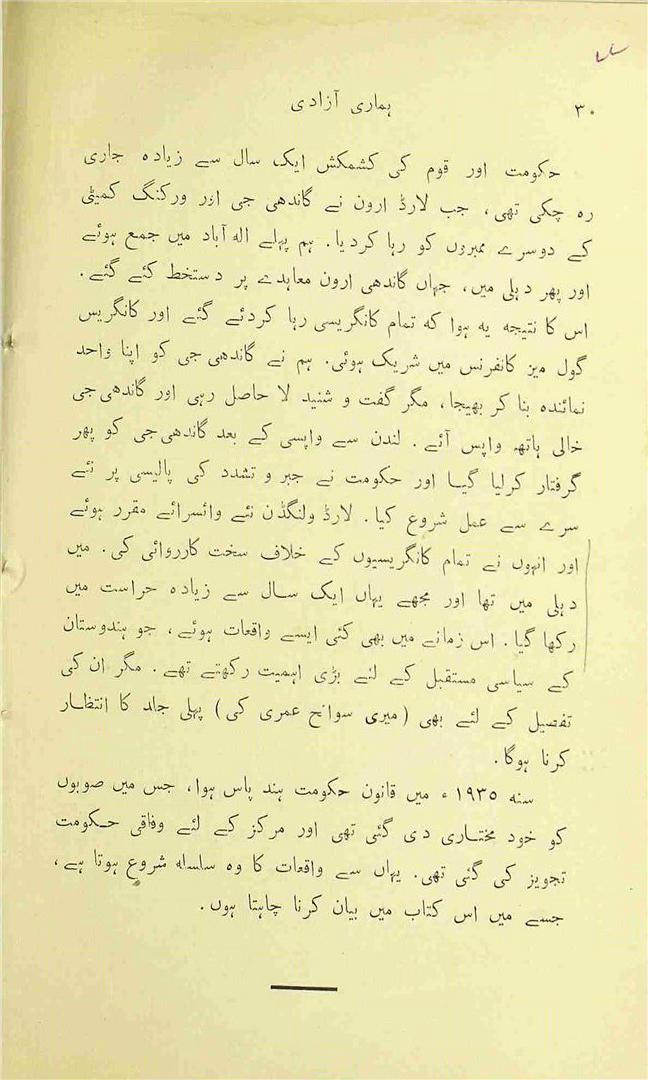 ۳۰
ہماری آزادی
حکومت اور قوم کی کشمکش ایک سال سے زیادہ جاری
رہ چکی تھی، جب لارڈ ارون نے گاندھی جی اور ورکنگ کمیٹی
کے دوسرے ممبروں کو رہا کردیا. ہم پہلے الہ آباد میں جمع ہوئے
اور پھر دہلی میں، جہاں گاندھی ارون معاہدے پر دستخط کئے گئے.
اس کا نتیجہ یہ ہوا کہ تمام کانگریسی رہا کردئے گئے اور کانگریس
گول میز کانفرنس میں شریک ہوئی. ہم نے گاندھی جی کو اپنا واحد
نمائندہ بنا کر بھیجا، مگر گفت و شنید لا حاصل رہی اور گاندھی جی
خالی ہاتھ واپس آئے. لندن سے واپسی کے بعد گاندھی جی کو پھر
گرفتار کرلیا گیا اور حکومت نے جبر و تشدد کی پالیسی پر نئے
سرے سے عمل شروع کیا. لارڈ ولنگڈن نئے وائسرائے مقرر ہوئے
اور انہوں نے تمام کانگریسیوں کے خلاف سخت کارروائی کی. میں
دہلی میں تھا اور مجھے یہاں ایک سال سے زیادہ حراست میں
رکھا گیا. اس زمانے میں بھی کئی ایسے واقعات ہوئے، جو ہندوستان
کے سیاسی مستقبل کے لئے بڑی اہمیت رکھتے تھے. مگر ان کی
تفصیل کے لئے بھی (میری سوانح عمری کی) پہلی جلد کا انتظار
کرنا ہوگا.
سنہ ۱۹۳۵ ء میں قانون حکومت ہند پاس ہوا، جس میں صوبوں
کو خود مختاری دی گئی تھی اور مرکز کے لئے وفاقی حکومت
تجویز کی گئی تھی. یہاں سے واقعات کا وہ سلسلہ شروع ہوتا ہے،
جسے میں اس کتاب میں بیان کرنا چاہتا ہوں.